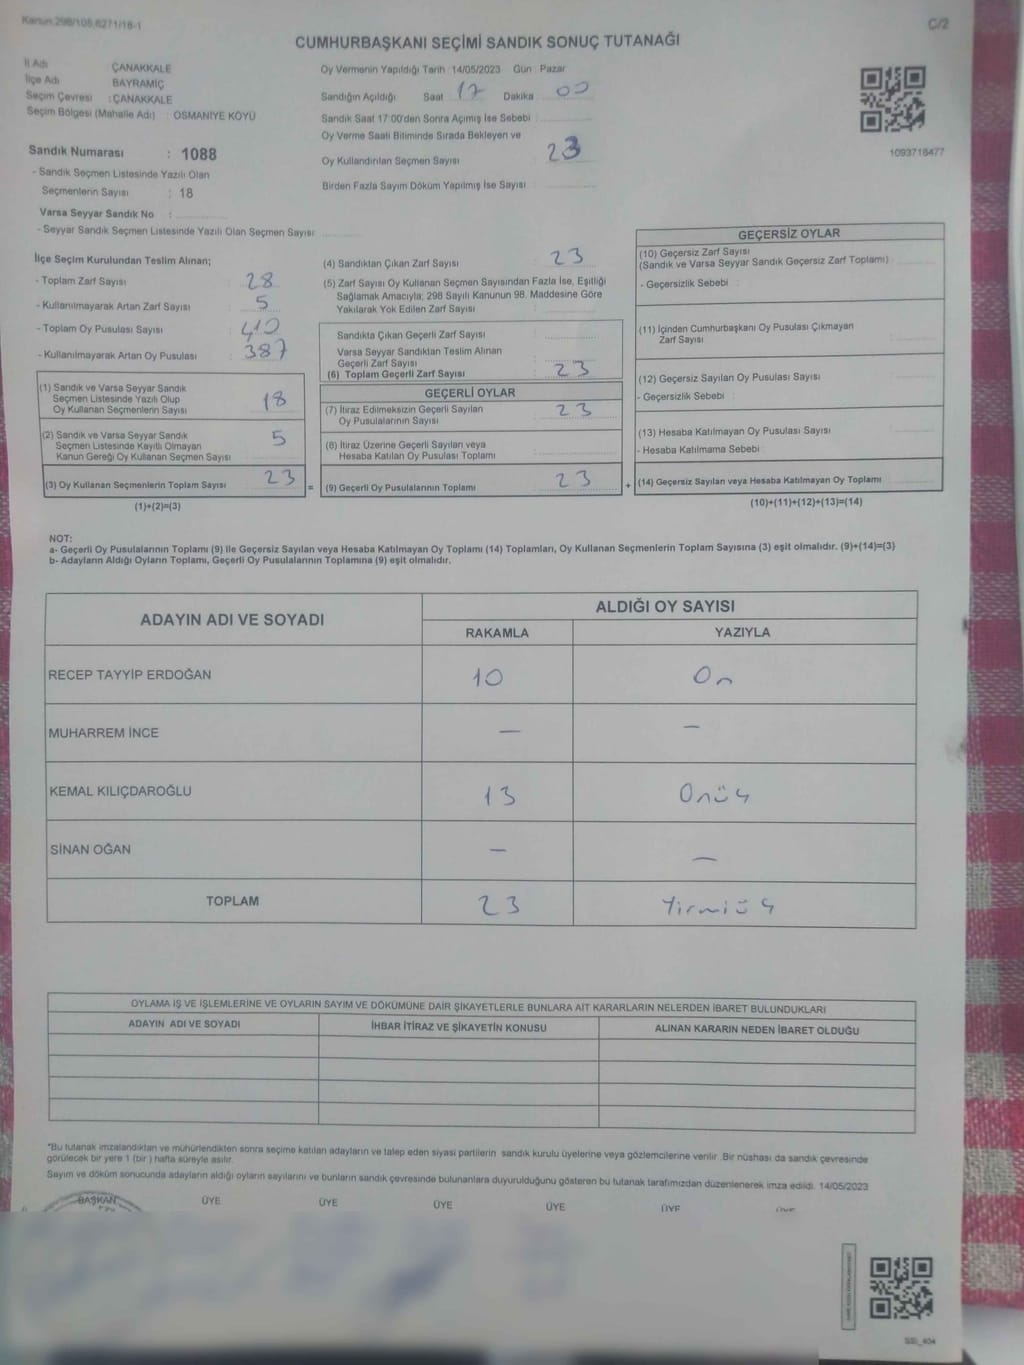 Kanun.298/105.6271/16-1
C/2
CUMHURBAŞKANI SEÇİMİ SANDIK SONUÇ TUTANAĞI
İl Adı ÇANAKKALE
İlçe Adı BAYRAMİÇ
Seçim Çevresi : ÇANAKKALE
Seçim Bölgesi (Mahalle Adı) : OSMANİYE KÖYÜ
Sandık Numarası : 1088
- Sandık Seçmen Listesinde Yazılı Olan
Seçmenlerin Sayısı : 18
Varsa Seyyar Sandık No :
- Seyyar Sandık Seçmen Listesinde Yazılı Olan Seçmen Sayısı
Oy Vermenin Yapıldığı Tarih :14/05/2023 Gün : Pazar
Sandığın Açıldığı Saat 17 Dakika 00
Sandık Saat 17:00'den Sonra Açımış İse Sebebi :
Oy Verme Saati Bitiminde Sırada Bekleyen ve
Oy Kullandırılan Seçmen Sayısı 23
Birden Fazla Sayım Döküm Yapılmış İse Sayısı
1093718477
İlçe Seçim Kurulundan Teslim Alınan;
- Toplam Zarf Sayısı : 28
- Kullanılmayarak Artan Zarf Sayısı : 5
- Toplam Oy Pusulası Sayısı : 410
- Kullanılmayarak Artan Oy Pusulası : 387
(1) Sandık ve Varsa Seyyar Sandık
Seçmen Listesinde Yazılı Olup
Oy Kullanan Seçmenlerin Sayısı 18
(2) Sandık ve Varsa Seyyar Sandık
Seçmen Listesinde Kayıtlı Olmayan
Kanun Gereği Oy Kullanan Seçmen Sayısı 5
(3) Oy Kullanan Seçmenlerin Toplam Sayısı 23 =
(1)+(2)=(3)
(4) Sandıktan Çıkan Zarf Sayısı 23
(5) Zarf Sayısı Oy Kullanan Seçmen Sayısından Fazla İse, Eşitliği
Sağlamak Amacıyla; 298 Sayılı Kanunun 98. Maddesine Göre
Yakılarak Yok Edilen Zarf Sayısı
Sandıkta Çıkan Geçerli Zarf Sayısı
Varsa Seyyar Sandıktan Teslim Alınan
Geçerli Zarf Sayısı
(6) Toplam Geçerli Zarf Sayısı 23
GEÇERLİ OYLAR
(7) İtiraz Edilmeksizin Geçerli Sayılan
Oy Pusulasının Sayısı 23
(8) İtiraz Üzerine Geçerli Sayılan veya
Hesaba Katılan Oy Pusulası Toplamı
(9) Geçerli Oy Pusulalarının Toplamı 23 +
GEÇERSİZ OYLAR
(10) Geçersiz Zarf Sayısı
(Sandık ve Varsa Seyyar Sandık Geçersiz Zarf Toplamı)
- Geçersizlik Sebebi :
(11) İçinden Cumhurbaşkanı Oy Pusulası Çıkmayan
Zarf Sayısı
(12) Geçersiz Sayılan Oy Pusulası Sayısı
- Geçersizlik Sebebi :
(13) Hesaba Katılmayan Oy Pusulası Sayısı
- Hesaba Katılmama Sebebi
(14) Geçersiz Sayılan veya Hesaba Katılmayan Oy Toplamı
(10)+(11)+(12)+(13)=(14)
NOT:
a- Geçerli Oy Pusulalarının Toplamı (9) ile Geçersiz Sayılan veya Hesaba Katılmayan Oy Toplamı (14) Toplamları, Oy Kullanan Seçmenlerin Toplam Sayısına (3) eşit olmalıdır. (9)+(14)=(3)
b- Adayların Aldığı Oyların Toplamı, Geçerli Oy Pusulalarının Toplamına (9) eşit olmalıdır.
ADAYIN ADI VE SOYADI
ALDIĞI OY SAYISI
RAKAMLA YAZIYLA
RECEP TAYYİP ERDOĞAN 10 On
MUHARREM İNCE — —
KEMAL KILIÇDAROĞLU 13 Onüç
SİNAN OĞAN — —
TOPLAM 23 Yirmiüç
OYLAMA İŞ VE İŞLEMLERİNE VE OYLARIN SAYIM VE DÖKÜMÜNE DAİR ŞİKAYETLERLE BUNLARA AİT KARARLARIN NELERDEN İBARET BULUNDUKLARI
ADAYIN ADI VE SOYADI İHBAR İTİRAZ VE ŞİKAYETİN KONUSU ALINAN KARARIN NEDEN İBARET OLDUĞU
*Bu tutanak imzalandıktan ve mühürlendikten sonra seçime katılan adayların ve talep eden siyasi partilerin sandık kurulu üyelerine veya gözlemcilerine verilir. Bir nüshası da sandık çevresinde
görülecek bir yere 1 (bir) hafta süreyle asılır.
Sayım ve döküm sonucunda adayların aldığı oyların sayılarını ve bunların sandık çevresinde bulunanlara duyurulduğunu gösteren bu tutanak tarafımızdan düzenlenerek imza edildi. 14/05/2023
BAŞKAN ÜYE ÜYE ÜYE ÜYE ÜYE ÜYE